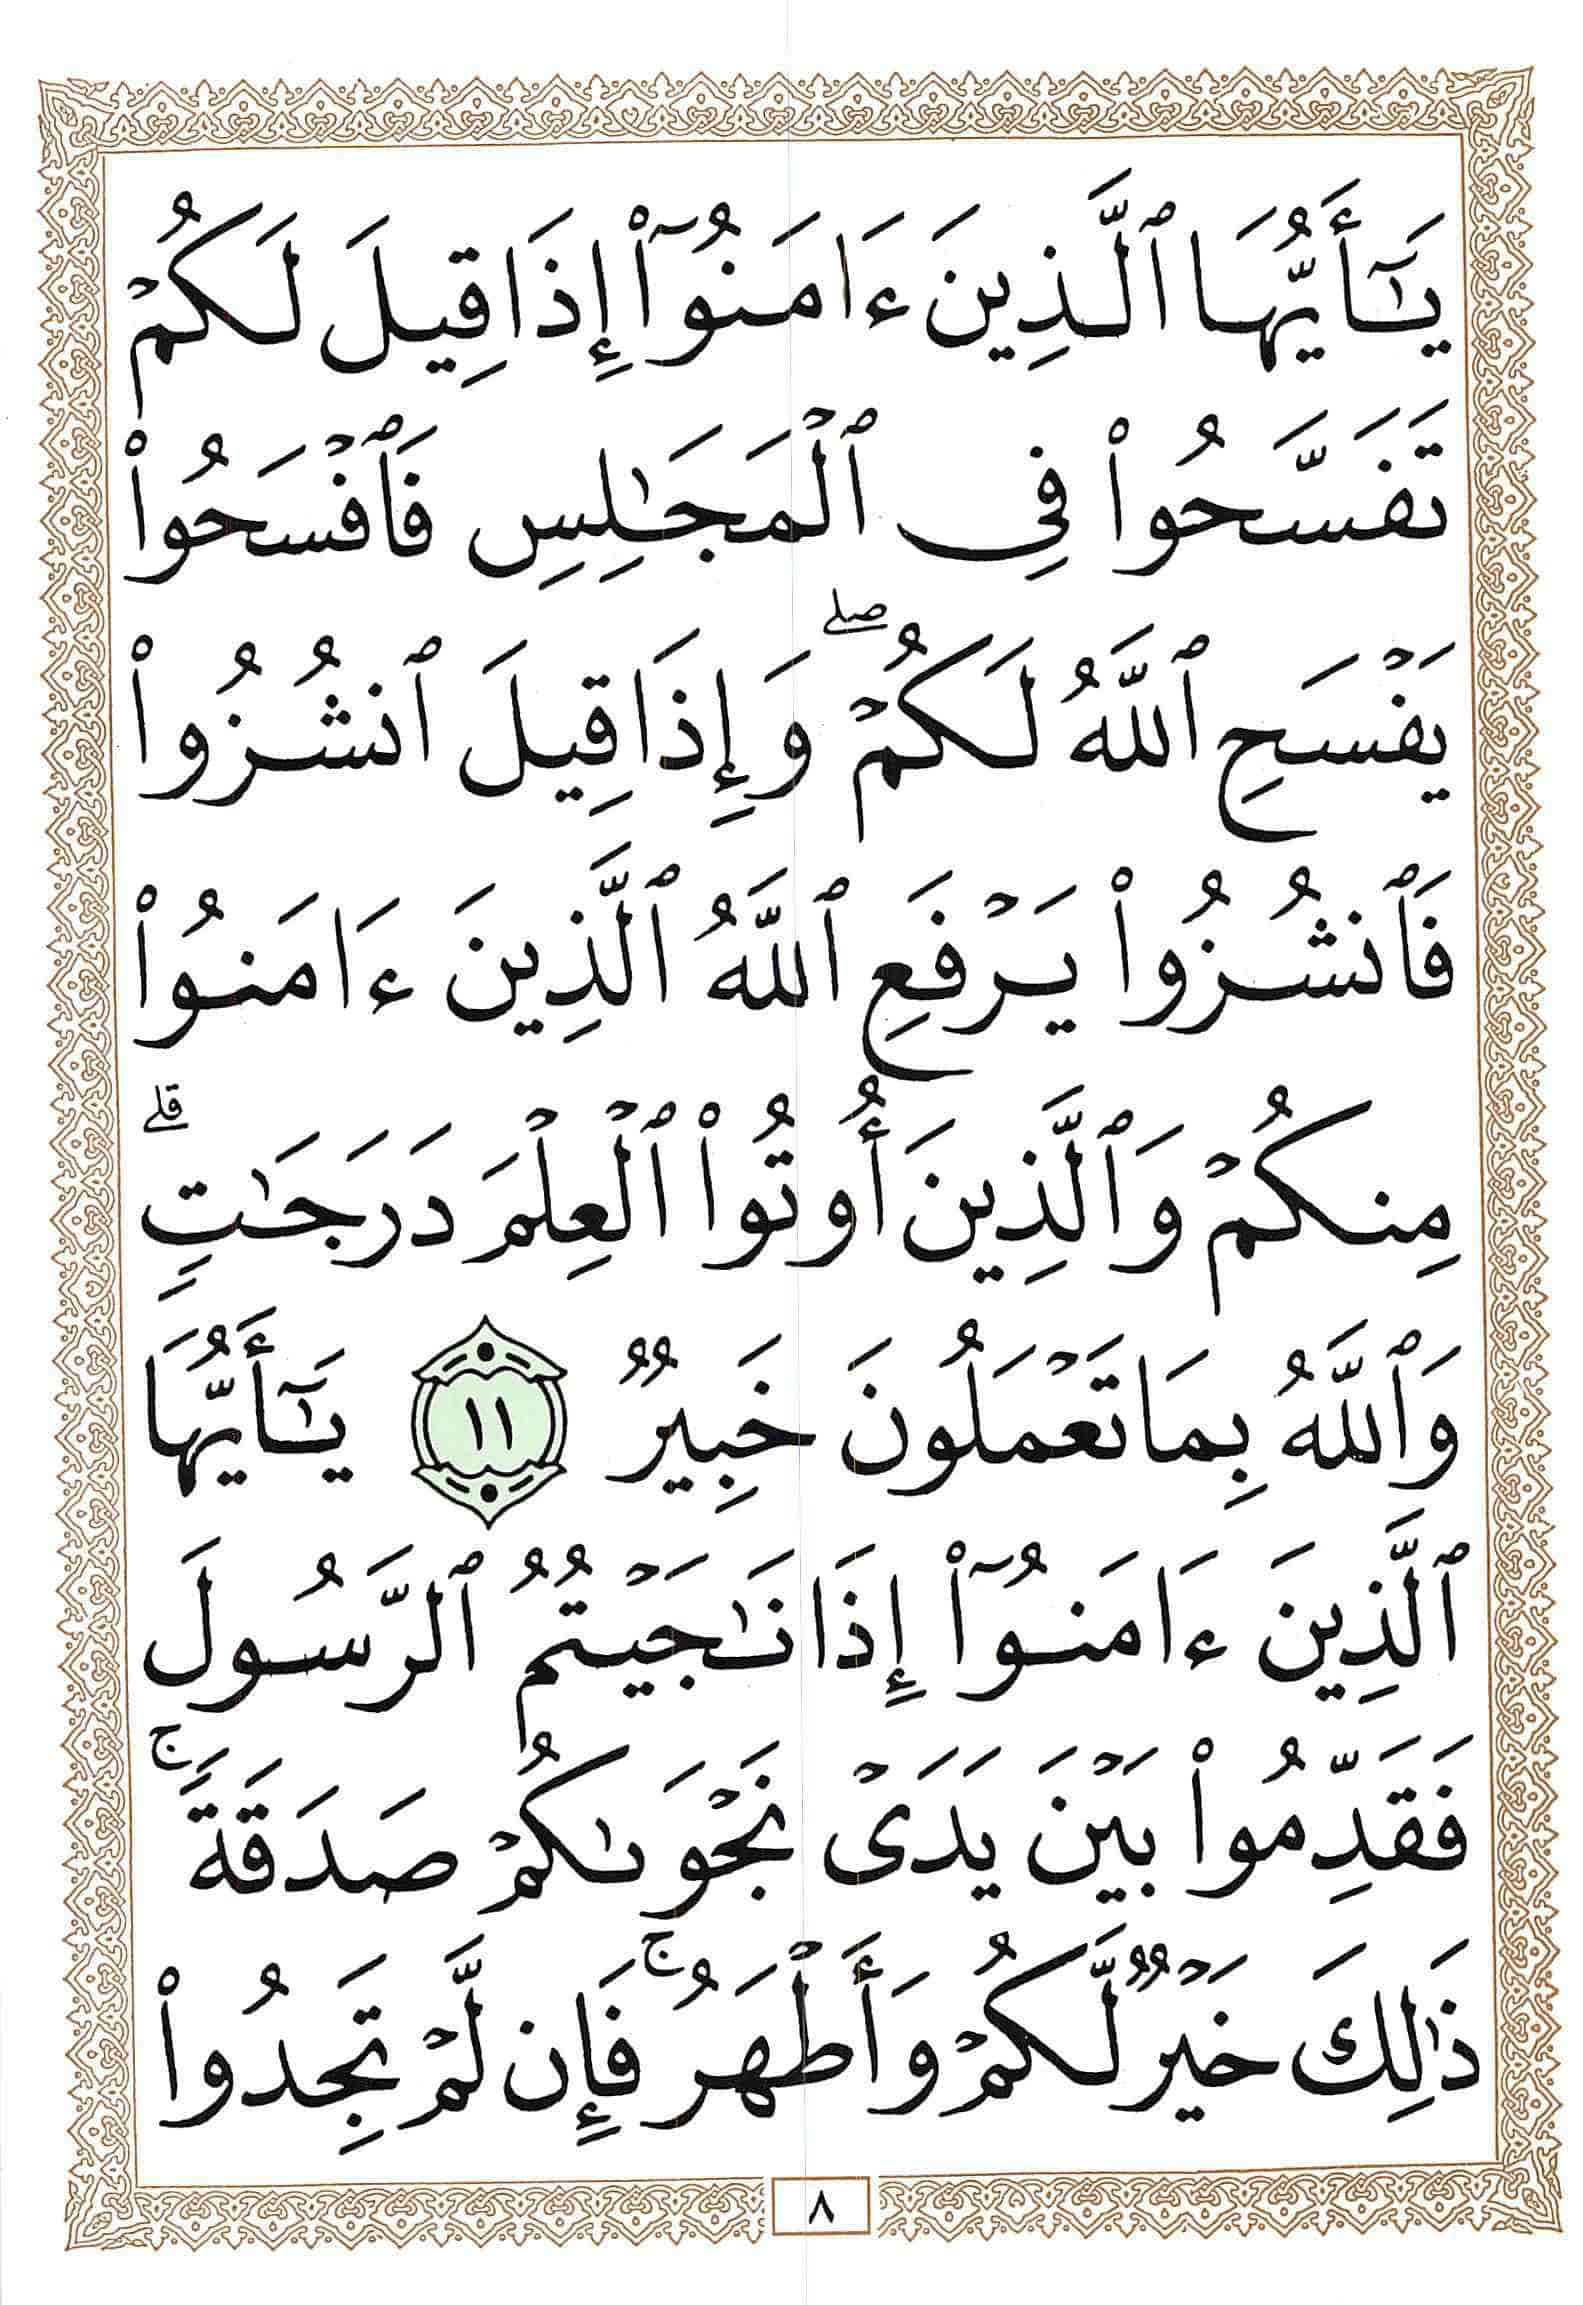 يَـٰٓأَيُّهَا ٱلَّذِينَ ءَامَنُوٓا۟ إِذَا قِيلَ لَكُمْ
تَفَسَّحُوا۟ فِى ٱلْمَجَـٰلِسِ فَٱفْسَحُوا۟
يَفْسَحِ ٱللَّهُ لَكُمْ ۖ وَإِذَا قِيلَ ٱنشُزُوا۟
فَٱنشُزُوا۟ يَرْفَعِ ٱللَّهُ ٱلَّذِينَ ءَامَنُوا۟
مِنكُمْ وَٱلَّذِينَ أُوتُوا۟ ٱلْعِلْمَ دَرَجَـٰتٍ ۗ
وَٱللَّهُ بِمَا تَعْمَلُونَ خَبِيرٌ ١١ يَـٰٓأَيُّهَا
ٱلَّذِينَ ءَامَنُوٓا۟ إِذَا نَـٰجَيْتُمُ ٱلرَّسُولَ
فَقَدِّمُوا۟ بَيْنَ يَدَىْ نَجْوَىٰكُمْ صَدَقَةً ۚ
ذَٰلِكَ خَيْرٌ لَّكُمْ وَأَطْهَرُ ۚ فَإِن لَّمْ تَجِدُوا۟
٨